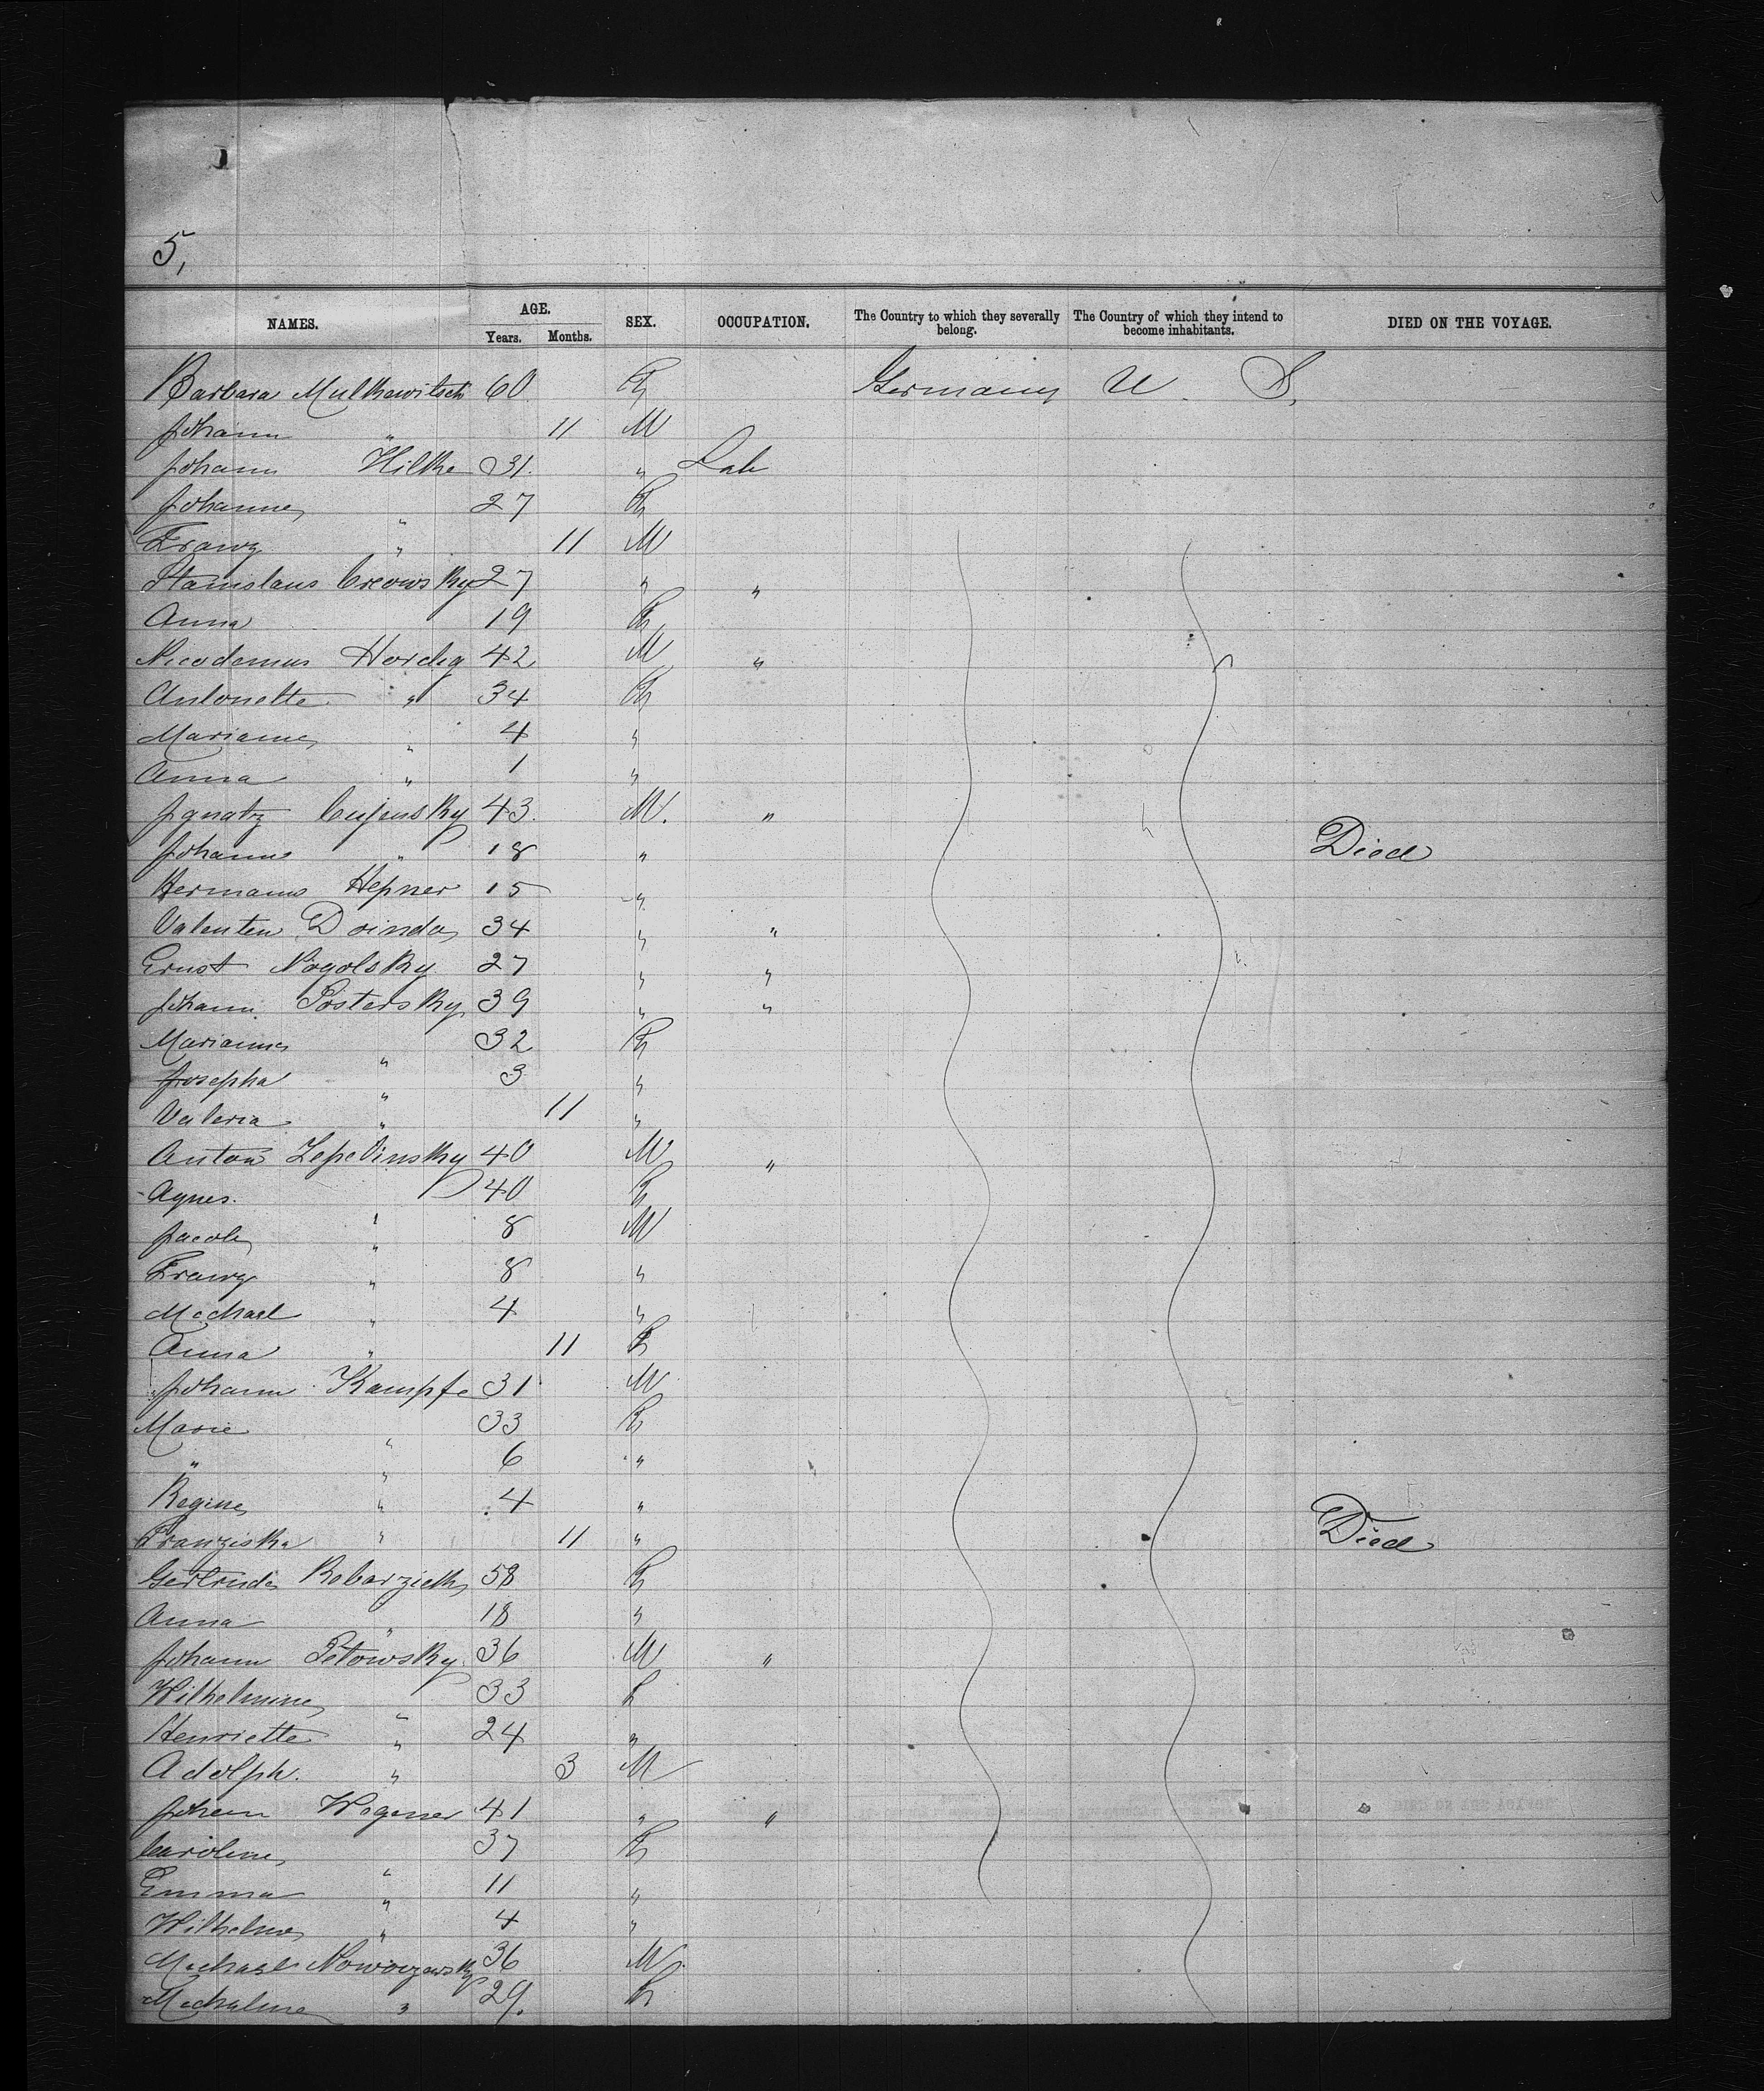 5,
NAMES. AGE. SEX. OCCUPATION. The Country to which they severally belong. The Country of which they intend to become inhabitants. DIED ON THE VOYAGE.
Years. Months.
Barbara Mulkewitsch 60 F Germany U. S.
Johann " 11 M
Johann Hilke 31. " Lab
Johanne " 27 F
Franz " 11 M
Stanislaus Czeowsky 27 " "
Anna 19 F
Nicodemus Hordig 42 M "
Antonette " 34 F
Marianne " 4 "
Anna " 1 "
Ignatz Cujensky 43. M. "
Johann " 18 " Died
Hermann Hepner 15 "
Valentin Doinda 34 " "
Ernst Nogolsky 27 " "
Johann Postersky 39 " "
Marianne " 32 F
Josepha " 3 "
Valeria " 11 "
Anton Zepelinsky 40 M "
Agnes. " 40 F
Jacob " 8 M
Franz " 8 "
Michael " 4 "
Anna " 11 F
Johann Kampfe 31 M
Marie " 33 F
" " 6 "
Regine " 4 "
Franziska " 11 " Died
Gertrude Robarzieck 58 F
Anna " 18 "
Johann Petowsky 36 M "
Wilhelmine " 33 F
Henriette " 24 "
Adolph. " 3 M
Johann Wegener 41 " "
Caroline " 37 F
Emma " 11 "
Wilhelm " 4 "
Michael 36 M
Michaline " 29. F